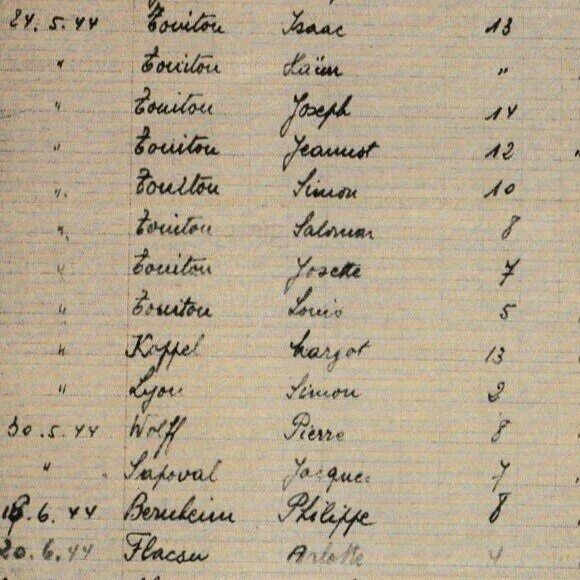 24.5.44 Touitou Isaac 13
" Touitou Haïm "
" Touitou Joseph 14
" Touitou Jeannot 12
" Touitou Simon 10
" Touitou Salomon 8
" Touitou Josette 7
" Touitou Louis 5
" Koppel Margot 13
" Lyon Simon 2
30.5.44 Wolff Pierre 8
" Sapoval Jacques 7
6.44 Bernheim Philippe 8
20.6.44 Flacsu Arlette 4